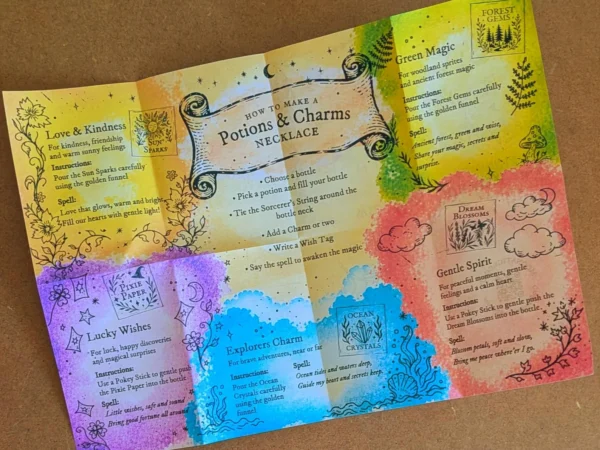 HOW TO MAKE A
Potions & Charms
NECKLACE
• Choose a bottle
• Pick a potion and fill your bottle
• Tie the Sorcerer's String around the
bottle neck
• Add a Charm or two
• Write a Wish Tag
• Say the spell to awaken the magic
Love & Kindness
For kindness, friendship
and warm sunny feelings
Instructions:
Pour the Sun Sparks carefully
using the golden funnel
Spell:
Love that glows, warm and bright,
Fill our hearts with gentle light!
SUN
SPARKS
Green Magic
For woodland sprites
and ancient forest magic
Instructions:
Pour the Forest Gems carefully
using the golden funnel
Spell:
Ancient forest, green and wise,
Share your magic, secrets and
surprise.
FOREST
GEMS
DREAM
BLOSSOMS
Gentle Spirit
For peaceful moments, gentle
feelings and a calm heart
Instructions:
Use a Pokey Stick to gentle push the
Dream Blossoms into the bottle
Spell:
Blossom petals, soft and slow,
Bring me peace where'er I go.
PIXIE
PAPER
Lucky Wishes
For luck, happy discoveries
and magical surprises
Instructions:
Use a Pokey Stick to gentle push
the Pixie Paper into the bottle
Spell:
Little wishes, soft and sound
Bring good fortune all around
OCEAN
CRYSTALS
Explorers Charm
For brave adventures, near or far
Instructions:
Pour the Ocean
Crystals carefully
using the golden
funnel
Spell:
Ocean tides and waters deep,
Guide my heart and secrets keep.